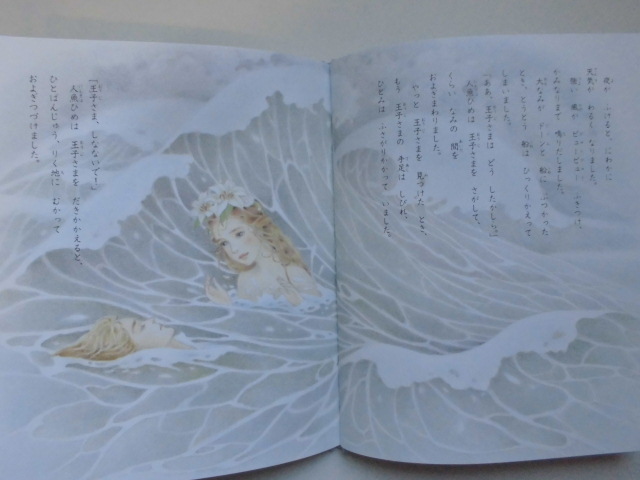 夜が ふけると、にわかに
天気が わるく なりました。
強い 風が ビュービュー ふきつけ、
かみなりまで 鳴りだしました。
大なみが ドーンと 船に ぶつかった
とき、とうとう 船は ひっくりかえって
しまいました。
「ああ、王子さまは どう したかしら。」
人魚ひめは 王子さまを さがして、
くらい なみの 間を
およぎまわりました。
やっと 王子さまを 見つけた とき、
もう 王子さまの 手足は しびれ、
ひとみは ふさがりかかって いました。
「王子さま、しなないで!」
人魚ひめは 王子さまを だきかかえると、
ひとばんじゅう、りく地に むかって
およぎつづけました。